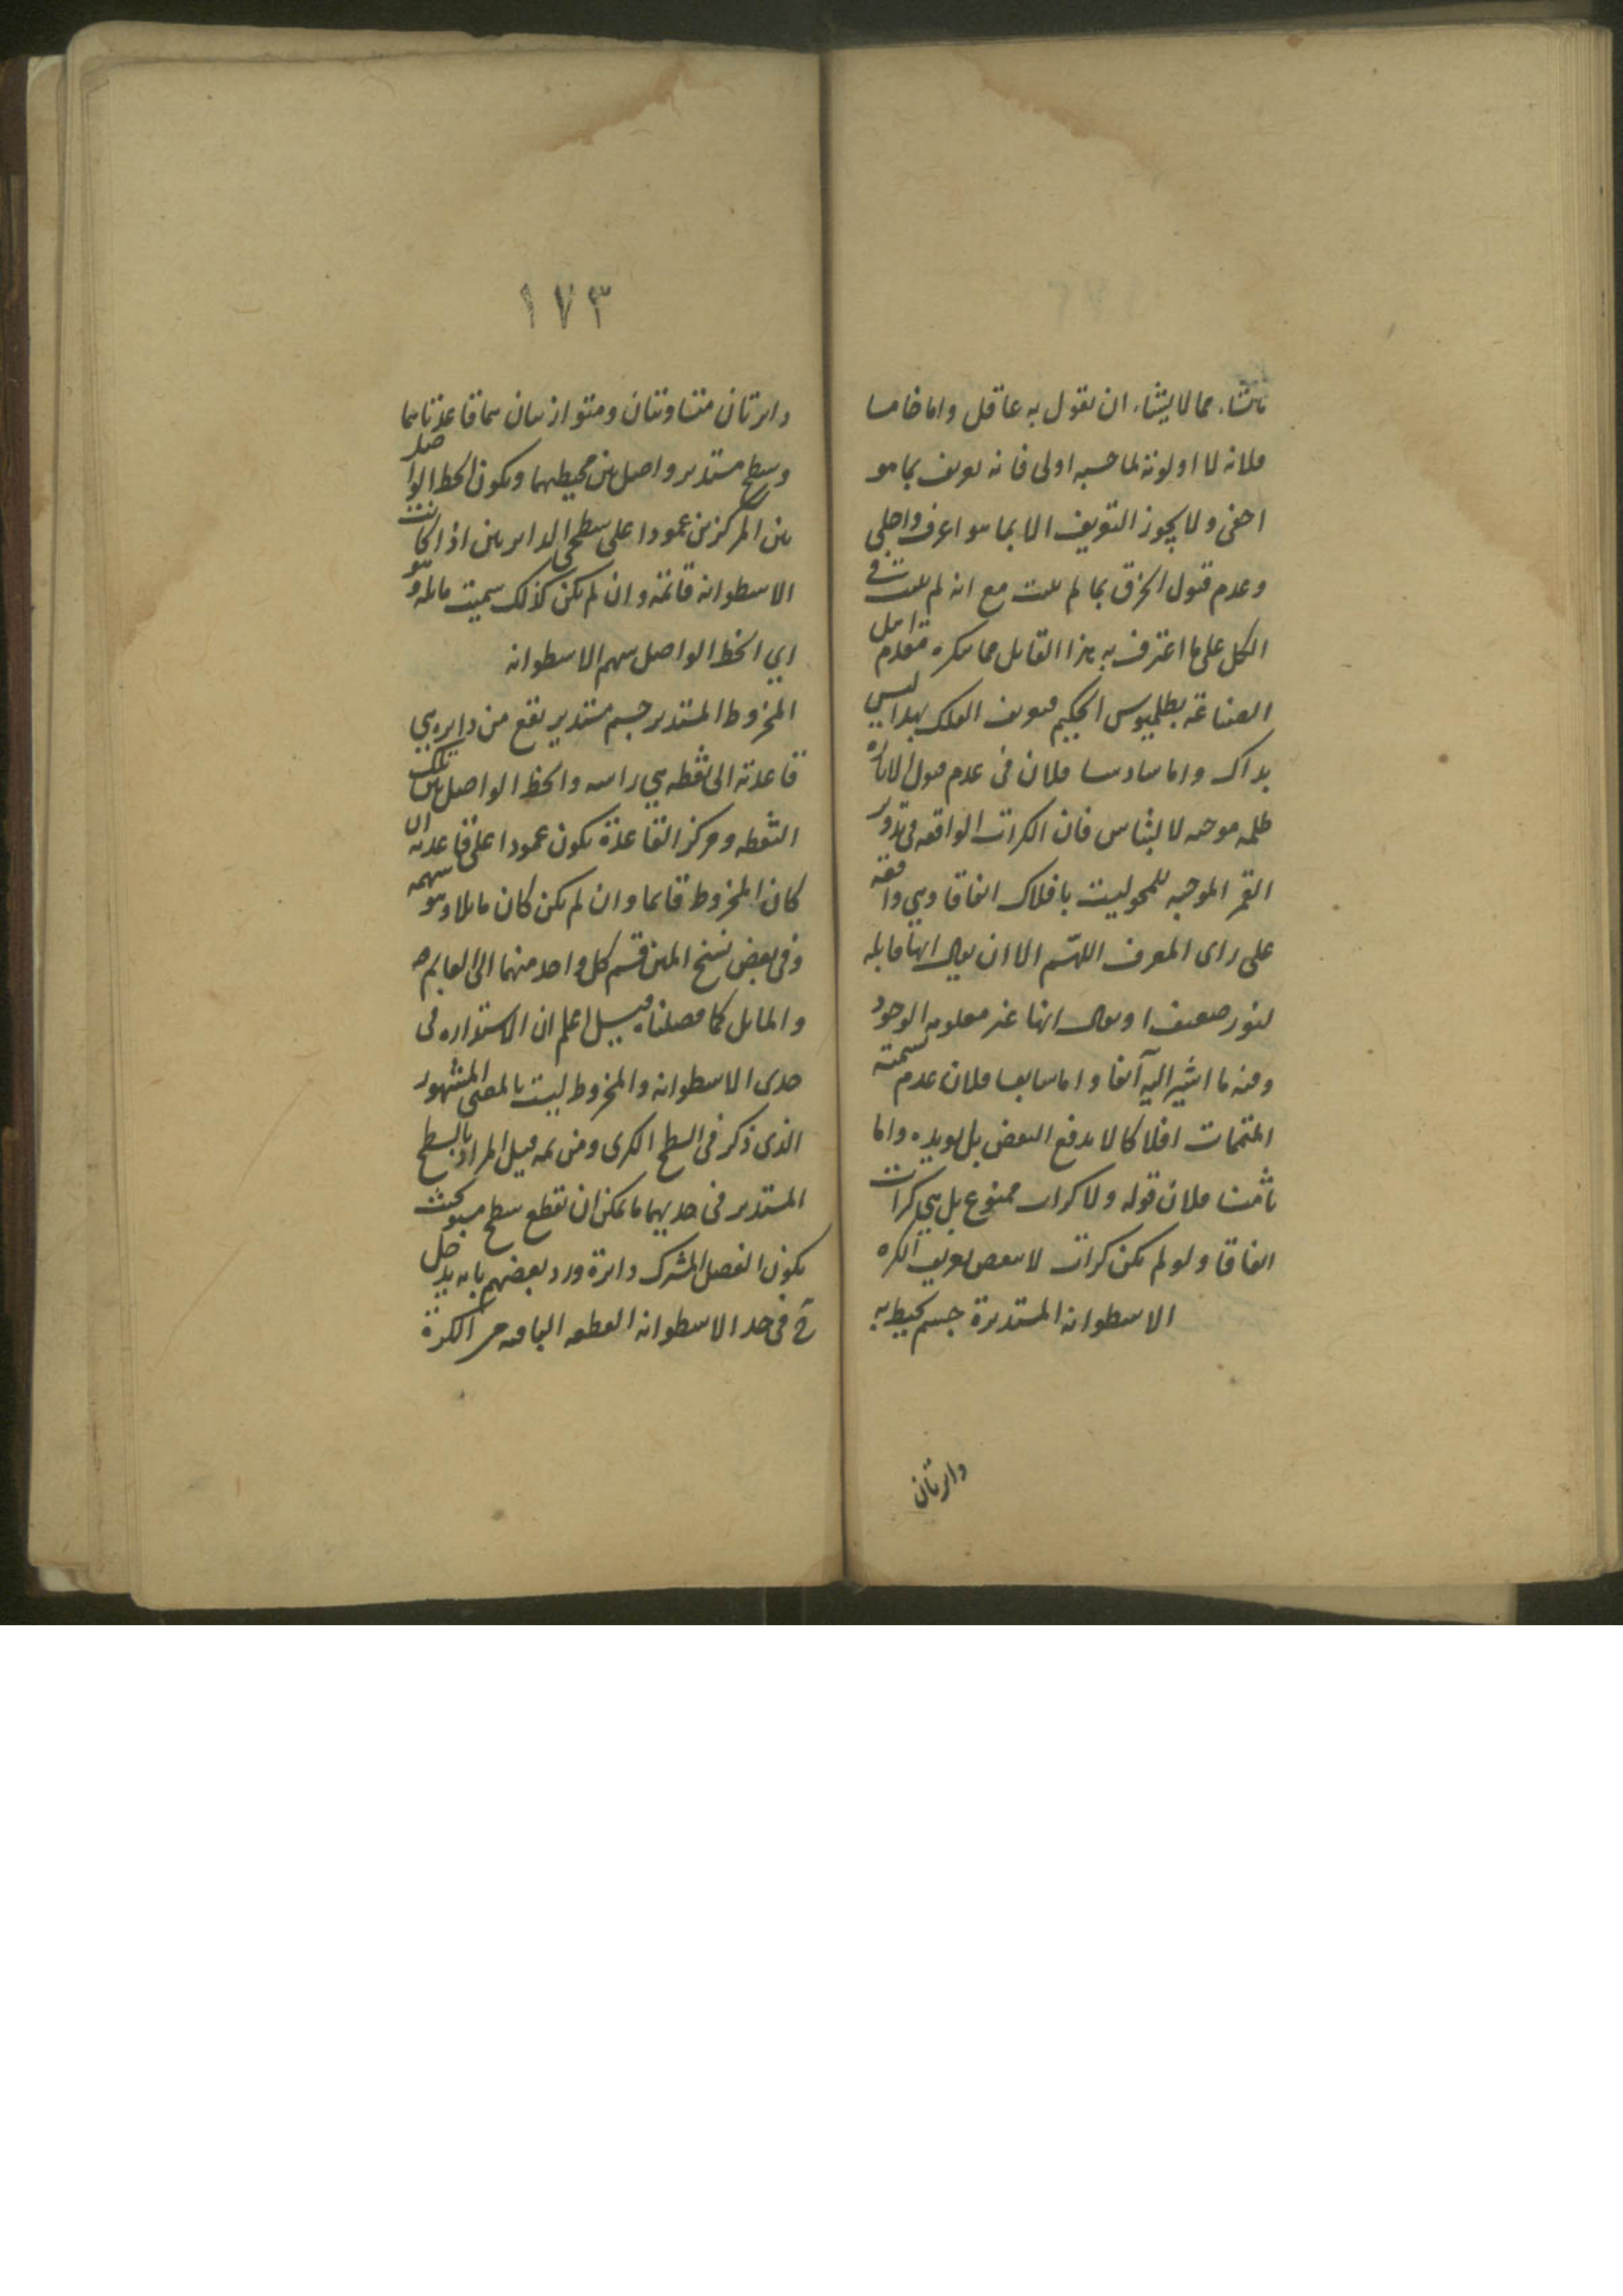 يشاء مما لا يشاء ان يقول به عاقل واما خامسا
فلانه لا اولوية لما حسبه اولى فانه تعريف بما هو
اخفى ولا يجوز التعريف الا بما هو اعرف واجلى
وعدم قبول الخرق بما لم يثبت مع انه لم يثبت في
الكل على ما اعترف به هذا القايل مما ينكره مقدم اهل
الصناعة بطلميوس الحكيم فتعريف الفلك بهذا ليس
بذاك واما سادسا فلان في عدم قبول الانارة
ظلمة موحشة لا للناس فان الكرات الواقعة في تدوير
القمر الموجبة للمحو ليست بافلاك اتفاقا وهي واقعة
على راى المعرف اللهم الا ان يقال انها قابلة
لنور ضعيف او يقال انها غير معلومة الوجود
وفيه ما اشير اليه آنفا واما سابعا فلان عدم تسمية
المتممات افلاكا لا يدفع النقض بل يويده واما
ثامنا فلان قوله ولا كرات ممنوع بل هي كرات
اتفاقا ولو لم يكن كرات لا ينتقض تعريف الكره
الاسطوانه المستديرة جسم يحيط به
دايرتان
١٧٣
دايرتان متساويتان ومتوازيتان هما قاعدتاهما
وسطح مستدير واصل بين محيطيهما ويكون الخط الواصل
بين المركزين عمودا على سطحي الدايرتين اذا كانت
الاسطوانه قائمة وان لم يكن كذلك سميت مايلة وهو
اي الخط الواصل سهم الاسطوانه
المخروط المستدير جسم مستدير يقع من دايرة هي
قاعدته الى نقطه هي راسه والخط الواصل بين تلك
النقطه ومركز القاعدة يكون عمودا على قاعدته ان
كان المخروط قايما وان لم يكن كان مايلا وهو سهمه
وفي بعض نسخ المتن قسم كل واحد منهما الى القايم
والمايل كما فصلناه قيل اعلم ان الاستداره في
حدى الاسطوانه والمخروط ليست بالمعنى المشهور
الذى ذكر في السطح الكرى ومن ثمه قيل المراد بالسطح
المستدير في حديهما ما يمكن ان يقطع سطح مستو بحيث
يكون الفصل المشترك دايرة ورد بعضهم بانه يدخل
ح في حد الاسطوانه القطعه الباقيه من الكرة